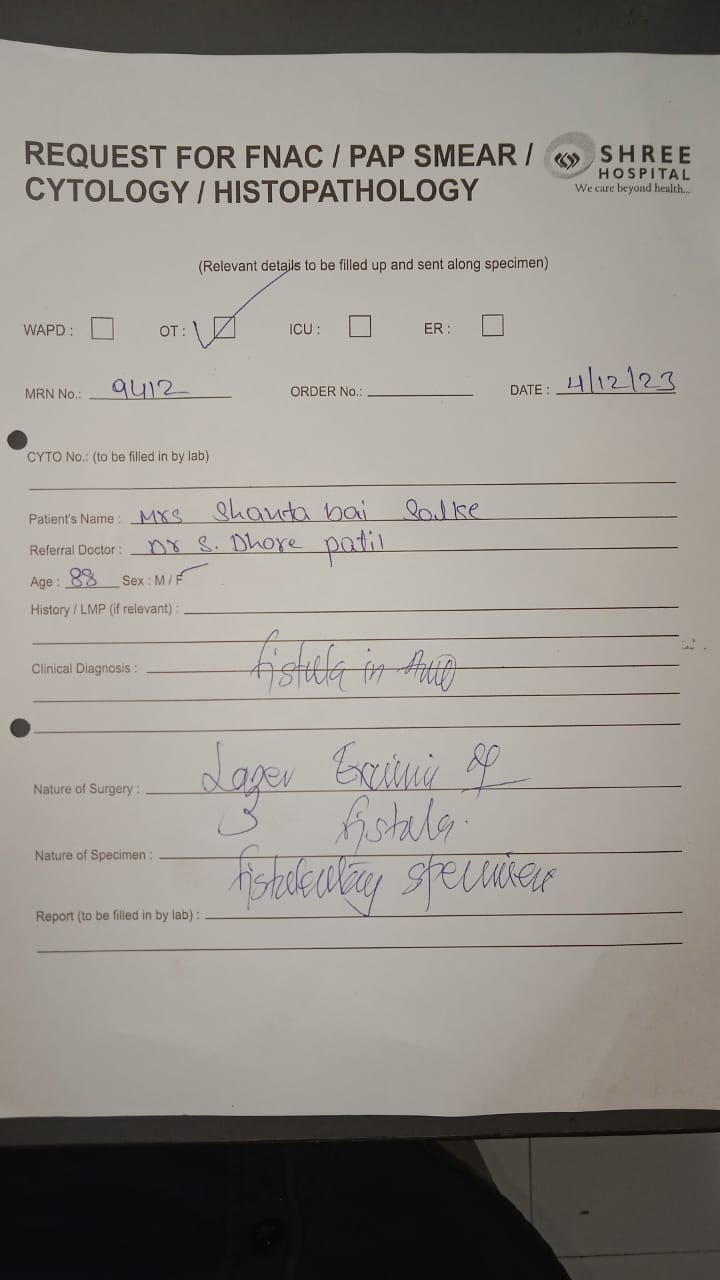 REQUEST FOR FNAC / PAP SMEAR /
CYTOLOGY / HISTOPATHOLOGY
SHREE
HOSPITAL
We care beyond health...
(Relevant details to be filled up and sent along specimen)
WAPD : OT : ICU : ER :
MRN No.: 9412 ORDER No.: DATE : 4/12/23
CYTO No.: (to be filled in by lab)
Patient's Name : Mrs Shanta bai
Referral Doctor : Dr S. Dhore patil
Age : 88 Sex : M / F
History / LMP (if relevant) :
Clinical Diagnosis : fistula in Ano
Nature of Surgery : Lazer of
fistula.
Nature of Specimen :
specimen
Report (to be filled in by lab) :